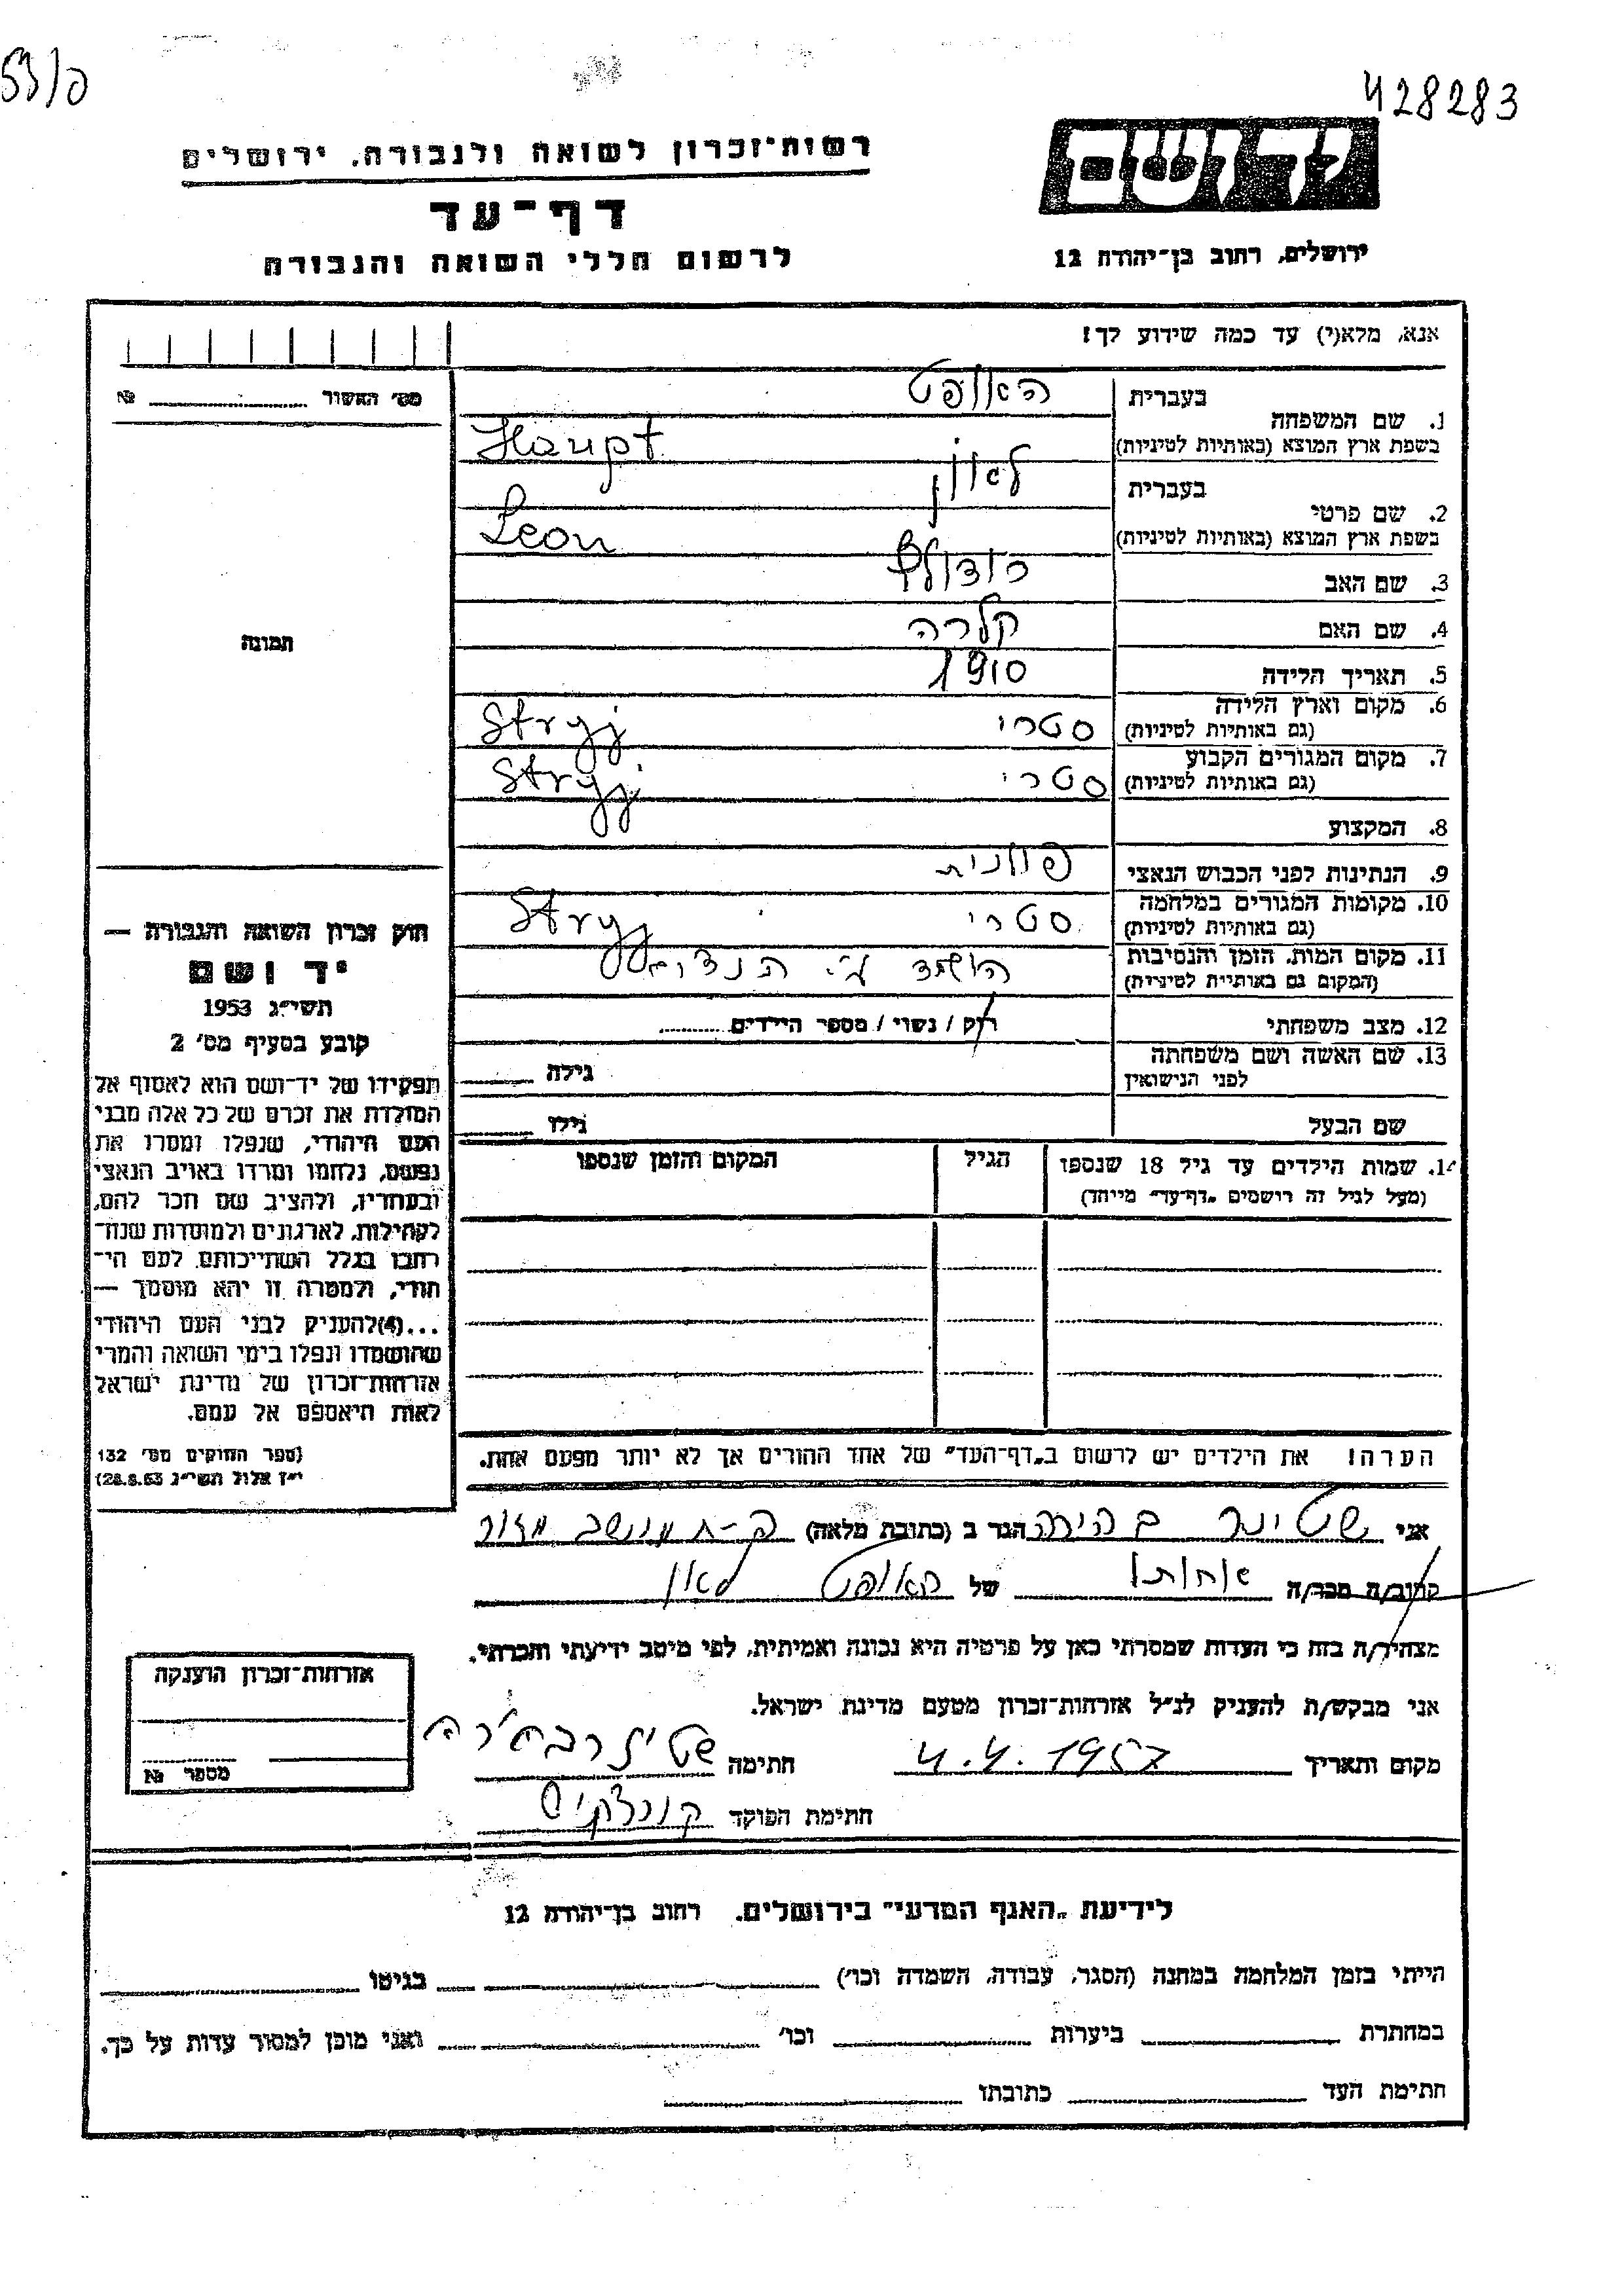 53/פ
428283
יד ושם
רשות־זכרון לשואה ולגבורה, ירושלים
דף־עד
לרשום חללי השואה והגבורה
ירושלים, רחוב בן־יהודה 12
אנא, מלא(י) עד כמה שידוע לך!
מס׳ האשור № 
1. שם המשפחה בעברית האופט
בשפת ארץ המוצא (באותיות לטיניות) Haupt
2. שם פרטי בעברית לאון
בשפת ארץ המוצא (באותיות לטיניות) Leon
3. שם האב רודולף
4. שם האם קלרה
5. תאריך הלידה 1910
6. מקום וארץ הלידה (גם באותיות לטיניות) סטרי Stryj
7. מקום המגורים הקבוע (גם באותיות לטיניות) סטרי Stryj
8. המקצוע
9. הנתינות לפני הכבוש הנאצי פולנית
10. מקומות המגורים במלחמה (גם באותיות לטיניות) סטרי Stryj
11. מקום המות, הזמן והנסיבות (המקום גם באותיות לטיניות) הושמד ע״י הנאצים
12. מצב משפחתי רוק / נשוי / מספר הילדים
13. שם האשה ושם משפחתה לפני הנישואין גילה
שם הבעל גילו
14. שמות הילדים עד גיל 18 שנספו
(מעל לגיל זה רושמים „דף־עד״ מיוחד)
הגיל
המקום והזמן שנספו
תמונה
חוק זכרון השואה והגבורה —
יד ושם
תשי״ג 1953
קובע בסעיף מס׳ 2
תפקידו של יד־ושם הוא לאסוף אל
המולדת את זכרם של כל אלה מבני
העם היהודי, שנפלו ומסרו את
נפשם, נלחמו ומרדו באויב הנאצי
ובעוזריו, ולהציב שם וזכר להם,
לקהילות, לארגונים ולמוסדות שנח־
רבו בגלל השתייכותם לעם הי־
הודי, ולמטרה זו יהא מוסמך —
...(4)להעניק לבני העם היהודי
שהושמדו ונפלו בימי השואה והמרי
אזרחות־זכרון של מדינת ישראל
לאות היאספם אל עמם.
(ספר החוקים מס׳ 132
י״ז אלול תשי״ג 28.8.53)
הערה! את הילדים יש לרשום ב„דף־העד״ של אחד ההורים אך לא יותר מפעם אחת.
אני שטינר בהירה הגר ב (כתובת מלאה) מושב מזור
קרוב/ה מכר/ה אחותו של האופט לאון
מצהיר/ה בזה כי העדות שמסרתי כאן על פרטיה היא נכונה ואמיתית, לפי מיטב ידיעתי והכרתי.
אני מבקש/ת להעניק לנ״ל אזרחות־זכרון מטעם מדינת ישראל.
מקום ותאריך 4.4.1957 חתימה שטינר בהירה
חתימת הפוקד
אזרחות־זכרון הוענקה
מספר №
לידיעת „האגף המדעי״ בירושלים. רחוב בן־יהודה 12
הייתי בזמן המלחמה במחנה (הסגר, עבודה, השמדה וכו׳) בגיטו
במחתרת ביערות וכו׳ ואני מוכן למסור עדות על כך.
חתימת העד כתובתו